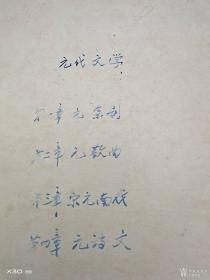 元代文学
第一章 元 杂剧
第二章 元 散曲
第三章 宋元南戏
第四章 元诗文
X30